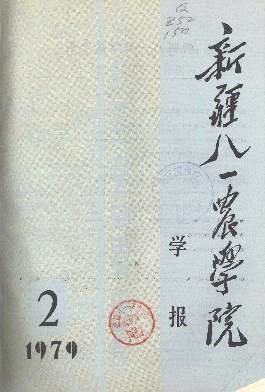 Q
S52
150
新疆八一農學院
学报
2
1979